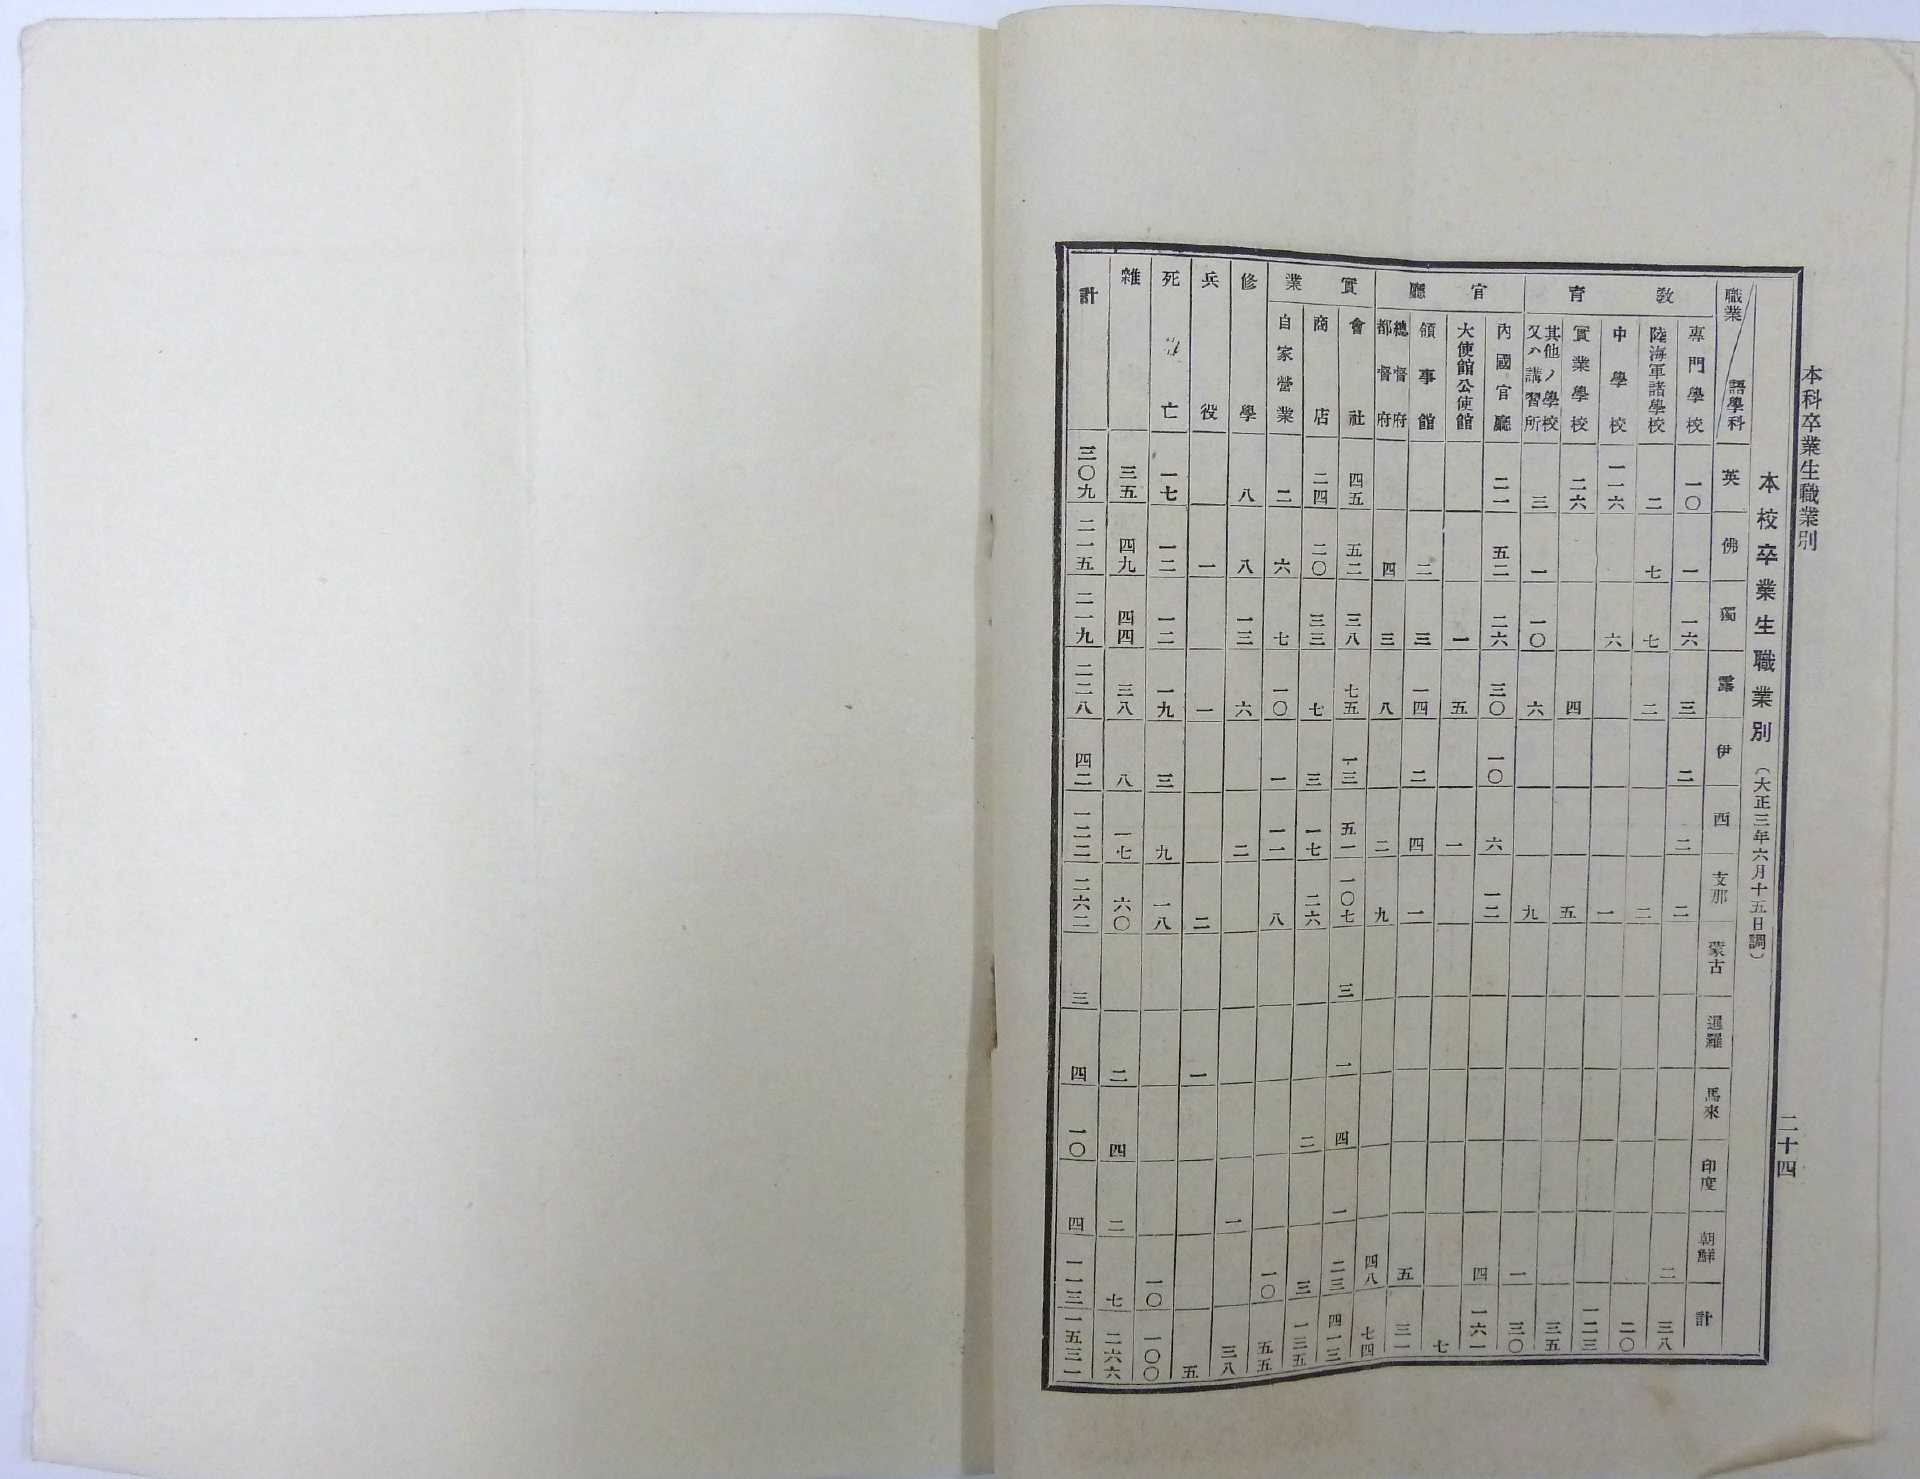 本科卒業生職業別 二十四
本校卒業生職業別(大正三年六月十五日調)
職業 語學科 英 佛 獨 露 伊 西 支那 蒙古 暹羅 馬來 印度 朝鮮 計
教育
專門學校 一〇 一 一六 三 二 二 二 二 三八
陸海軍諸學校 二 七 七 二 二 二〇
中學校 一一六 六 一 一二三
實業學校 二六 四 五 三五
其他ノ學校又ハ講習所 三 一 一〇 六 九 一 三〇
官廳
內國官廳 二一 五二 二六 三〇 一〇 六 一二 四 一六一
大使館公使館 一 五 一 七
領事館 二 三 一四 二 四 一 五 三一
總督府都督府 四 三 八 二 九 四八 七四
實業
會社 四五 五二 三八 七五 一三 五一 一〇七 三 一 四 一 二三 四一三
商店 二四 二〇 三三 七 三 一七 二六 二 三 一三五
自家營業 二 六 七 一〇 一 一一 八 一〇 五五
修學 八 八 一三 六 二 一 三八
兵役 一 一 二 一 五
死亡 一七 一二 一二 一九 三 九 一八 一〇 一〇〇
雜 三五 四九 四四 三八 八 一七 六〇 二 四 二 七 二六六
計 三〇九 二一五 二一九 二二八 四二 一二二 二六二 三 四 一〇 四 一一三 一五三一